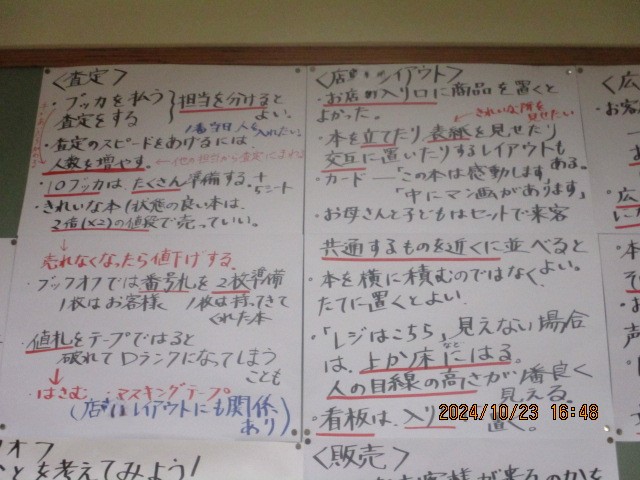 〈査定〉
・ブッカを払う
査定をする
担当を分けると
よい。
1番当日人を
入れたい。
・査定のスピードをあげるには、
人数を増やす。
・10ブッカは、たくさん準備する。
・きれいな本/状態の良い本は、
2倍(×2)の値段で売っていい。
↓
売れなくなったら値下げする。
・ブックオフでは番号札を2枚準備
1枚はお客様 1枚は持ってきて
くれた本
・値札をテープではると
破れてDランクになってしまう
ことも
↓
はさむ、マスキングテープ
レイアウトにも関係
あり)
レイアウト〉
・お店の入り口に商品を置くと
よかった。
きれいな所を
見せたい
・本を立てたり、表紙を見せたり
交互に置いたりするレイアウトも
ある。
・カード―「この本は感動します」
「中にマンガがあります」
・お母さんと子どもはセットで来客
共通するものを近くに並べると
よい。
・本を横に積むのではなく、
たてに置くとよい。
・「レジはこちら」見えない場合
は、
床にはる。
人の目線の高さが1番良く
見える。
・看板は、入り
置く。
2024/10/23 16:48
〈広
お客
〈販売〉
オフ
とを考えてみよう!